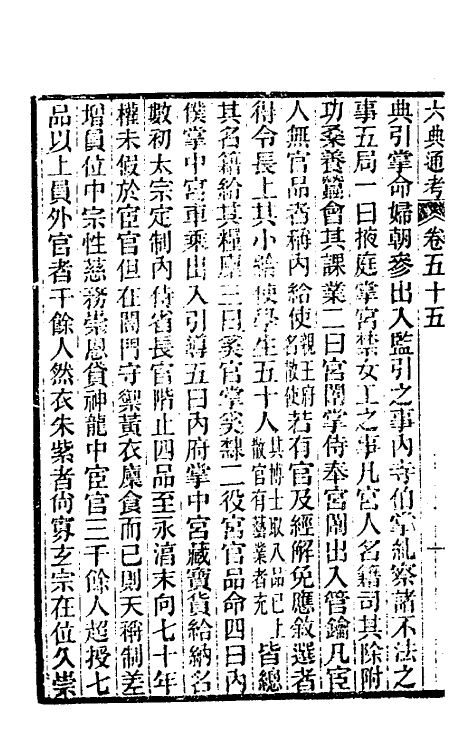 六典通考 卷五十五
典引掌命婦朝參出入監引之事內寺伯掌糺察諸不法之
事五局一曰掖庭掌宮禁女工之事凡宮人名籍司其除附
功桑養蠶會其課業二曰宮闈掌侍奉宮闈出入管鑰凡宦
人無官品者稱內給使親王府名散使若有官及經解免應敘選者
得令長上其小給使學生五十人其博士取八品已上散官有藝業者充皆總
其名籍給其糧廩三曰奚官掌奚隸二役宮官品命四曰內
僕掌中宮車乘出入引導五曰內府掌中宮藏寶貨給納名
數初太宗定制內侍省長官階止四品至永淳末向七十年
權未假於宦官但在閤門守禦黃衣廩食而已則天稱制差
增員位中宗性慈務崇恩貸神龍中宦官三千餘人超授七
品以上員外官者千餘人然衣朱紫者尚寡玄宗在位久崇